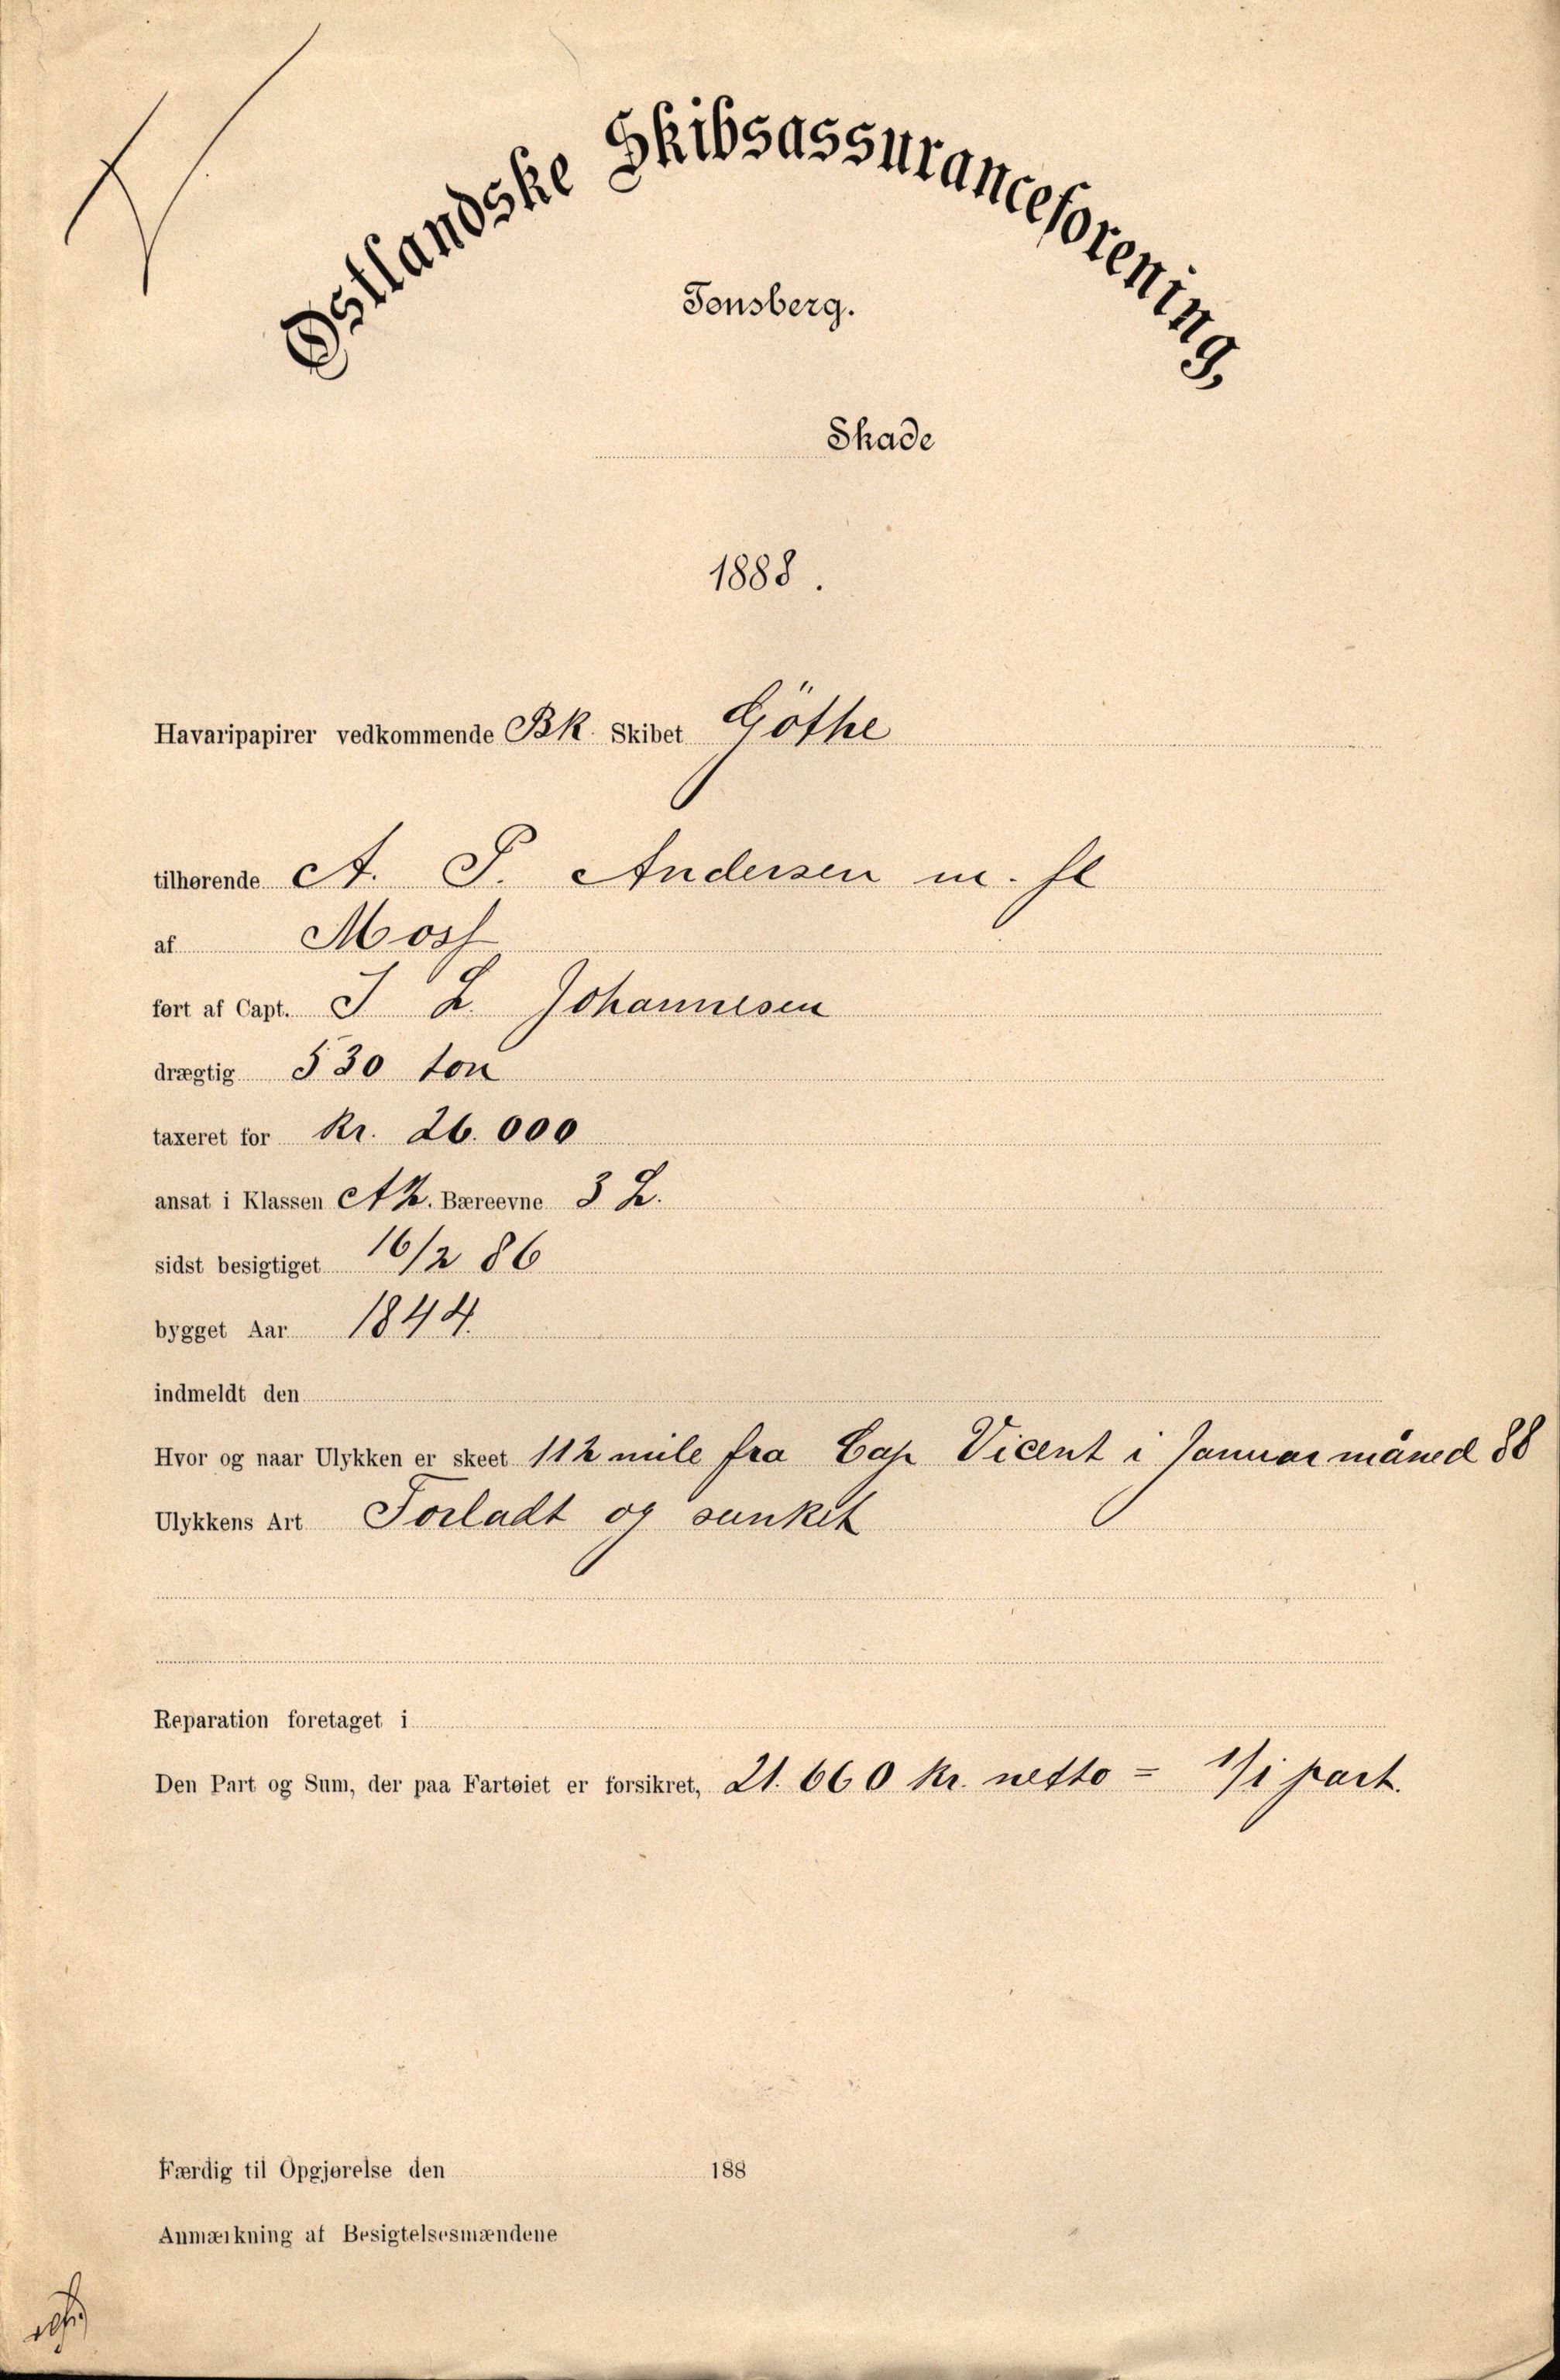 Østlandske Skibsassuranceforening,
Tønsberg.
Skade
1888.
Havaripapirer vedkommende Bk. Skibet Göthe
tilhørende A. P. Andersen m. fl
af Moss
ført af Capt. J L. Johannesen
drægtig 530 ton
taxeret for Kr. 26.000
ansat i Klassen A2. Bæreevne 3 L.
sidst besigtiget 16/2 86
bygget Aar 1844.
indmeldt den
Hvor og naar Ulykken er skeet 112 mile fra Cap Vicent i Januar måned 88
Ulykkens Art Forladt og sunket
Reparation foretaget i
Den Part og Sum, der paa Fartøiet er forsikret, 21.660 kr. netto = 1/1 part.
Færdig til Opgjørelse den 188
Anmærkning af Besigtelsesmændene